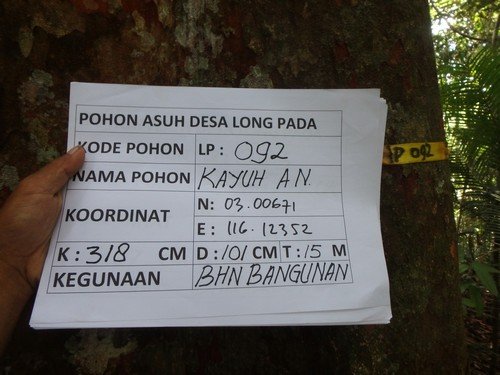 POHON ASUH DESA LONG PADA
KODE POHON LP : 092
NAMA POHON KAYUH AN.
KOORDINAT
N: 03.00671
E : 116.12352
K : 318 CM D : 101 CM T : 15 M
KEGUNAAN BHN BANGUNAN
P 092